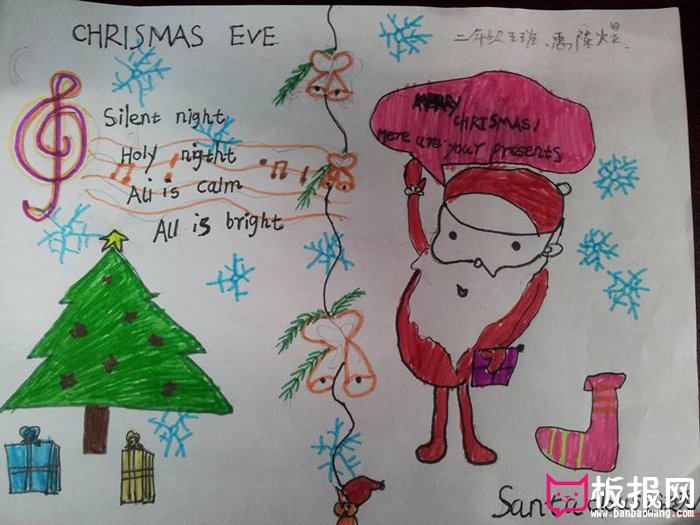 CHRISMAS EVE
二年级五班
Silent night
Holy nigtht
All is calm
All is bright
MERRY
CHRISMAS!
Here are your presents
Santa
板报网
www.banbaowang.com